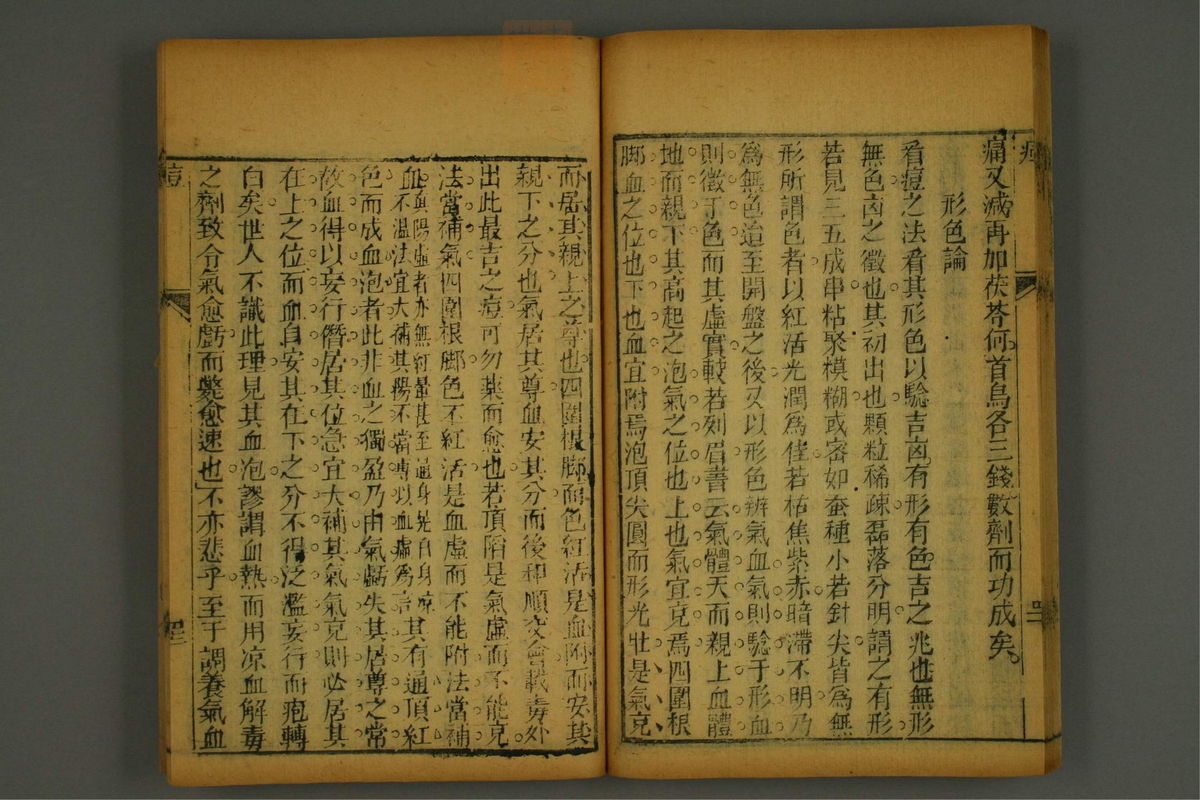 痛又滅再加茯苓何首烏各三錢數劑而功成矣
形色論
看痘之法看其形色以驗吉凶有形有色吉之兆也無形
無色凶之徵也其初出也顆粒稀疎磊落分明謂之有形
若見三五成串粘聚模糊或密如蚕種小若針尖皆爲無
形所謂色者以紅活光潤爲佳若枯焦紫赤暗滯不明乃
爲無色迨至開盤之後又以形色辨氣血氣則驗于形血
則徵于色而其虛實較若列眉書云氣體天而親上血體
地而親下其高起之泡氣之位也上也氣宜充焉四圍根
脚血之位也下也血宜附焉泡頂尖圓而形光壯是氣充
而居其親上之尊也四圍根脚而色紅活是血附而安其
親下之分也氣居其尊血安其分而後和順交會載毒外
出此最吉之痘可勿藥而愈也若頂陷是氣虛而不能克
法當補氣四圍根脚色不紅活是血虛而不能附法當補
血與陽虛者亦無紅暈甚至通身
血不溫法宜大補其陽不當專以血虛爲言其有通頂紅
色而成血泡者此非血之獨盈乃由氣虧失其居尊之常
故血得以妄行僭居其位急宜大補其氣氣克則必居其
在上之位而血自安其在下之分不得泛濫妄行而疱轉
白矣世人不識此理見其血泡謬謂血熱而用凉血解毒
之劑致令氣愈虧而斃愈速也不亦悲乎至于調養氣血
痘